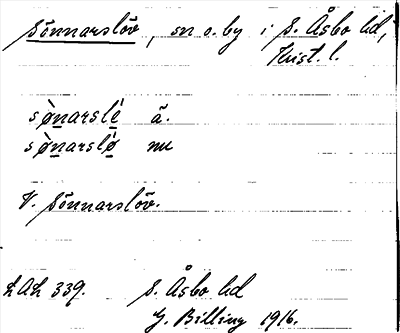 Sönnarslöv, sn o. by i S. Åsbo hd,
Krist. l.
sø̀narslė̀ ä.
sø̀narslø̀ nu
V. Sönnarslöv.
LAL 339. S. Åsbo hd
G. Billing 1916.